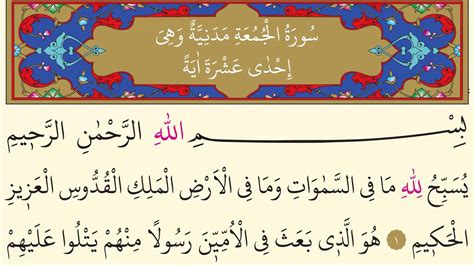 سُورَةُ الْجُمُعَةِ مَدَنِيَّةٌ وَهِىَ
اِحْدٰى عَشْرَةَ اٰيَةً
بِسْمِ اللّٰهِ الرَّحْمٰنِ الرَّحٖيمِ
يُسَبِّحُ لِلّٰهِ مَا فِى السَّمٰوَاتِ وَمَا فِى الْاَرْضِ الْمَلِكِ الْقُدُّوسِ الْعَزٖيزِ
الْحَكٖيمِ ١ هُوَ الَّذٖى بَعَثَ فِى الْاُمِّيّٖنَ رَسُولًا مِنْهُمْ يَتْلُوا عَلَيْهِمْ